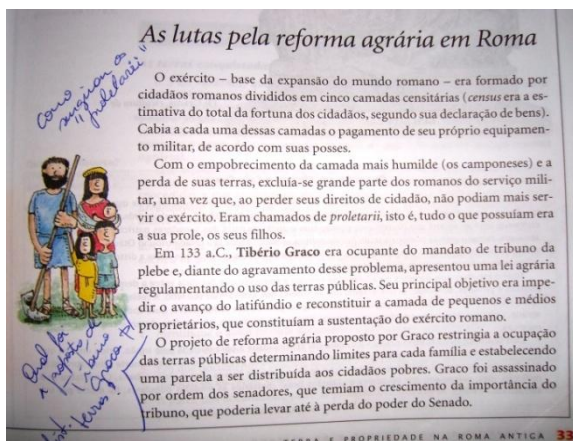 As lutas pela reforma agrária em Roma
O exército – base da expansão do mundo romano – era formado por
cidadãos romanos divididos em cinco camadas censitárias (census era a es-
timativa do total da fortuna dos cidadãos, segundo sua declaração de bens).
Cabia a cada uma dessas camadas o pagamento de seu próprio equipamen-
to militar, de acordo com suas posses.
Com o empobrecimento da camada mais humilde (os camponeses) e a
perda de suas terras, excluía-se grande parte dos romanos do serviço mili-
tar, uma vez que, ao perder seus direitos de cidadão, não podiam mais ser-
vir o exército. Eram chamados de proletarii, isto é, tudo o que possuíam era
a sua prole, os seus filhos.
Em 133 a.C., Tibério Graco era ocupante do mandato de tribuno da
plebe e, diante do agravamento desse problema, apresentou uma lei agrária
regulamentando o uso das terras públicas. Seu principal objetivo era impe-
dir o avanço do latifúndio e reconstituir a camada de pequenos e médios
proprietários, que constituíam a sustentação do exército romano.
O projeto de reforma agrária proposto por Graco restringia a ocupação
das terras públicas determinando limites para cada família e estabelecendo
uma parcela a ser distribuída aos cidadãos pobres. Graco foi assassinado
por ordem dos senadores, que temiam o crescimento da importância do
tribuno, que poderia levar até à perda do poder do Senado.
Como
surgiram os
"proletarii"
Qual foi
a proposta do
Tribuno
Graco p/
terras?
E PROPRIEDADE NA ROMA ANTIGA 33